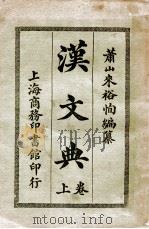 蕭山來裕恂編纂
漢文典
卷上
上海商務印書館印行
www.toutu.com